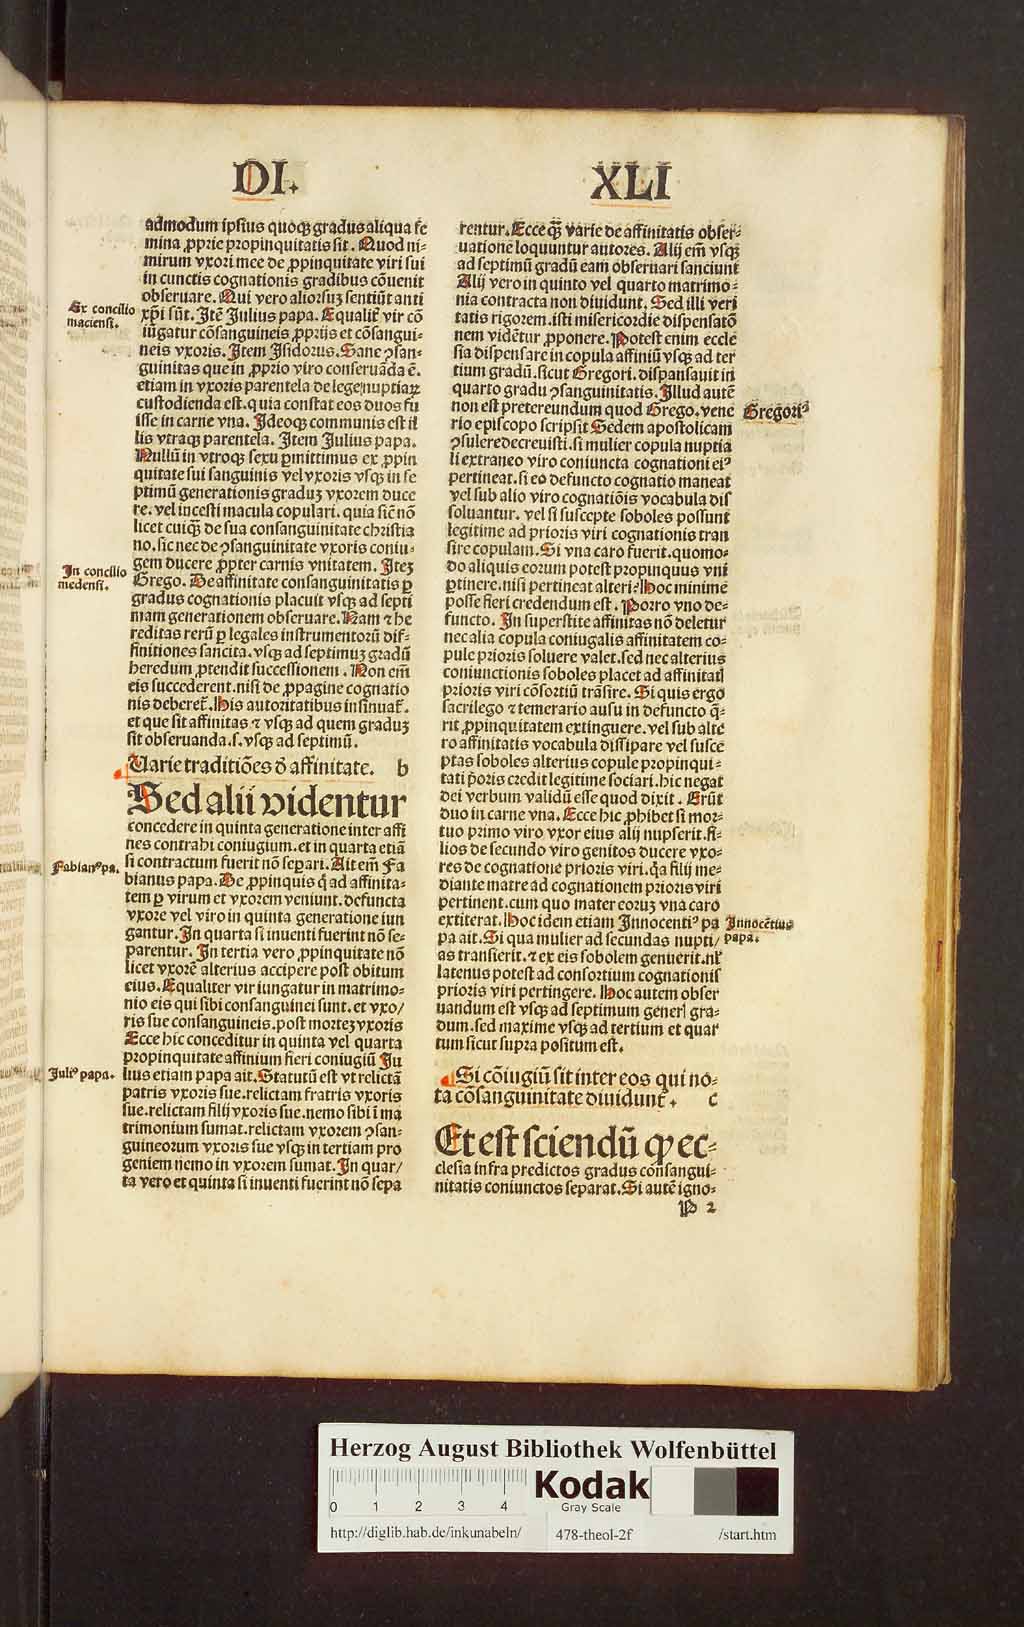 DI.
XLI
admodum ipsius quoqꝫ gradus aliqua fe
mina ꝓprie propinquitatis sit. Quod ni-
mirum vxori mee de ꝓpinquitate viri sui
in cunctis cognationis gradibus cōuenit
obseruare. Qui vero aliorsuꝫ sentiūt anti
xp̄i sūt. Itē Julius papa. Equalit̄ vir cō
iūgatur cōsanguineis ꝓprijs et cōsangui-
neis vxoris. Item Isidorus. Sane ꝯsan-
guinitas que in ꝓprio viro conseruāda ē.
etiam in vxoris parentela de lege nuptiaꝝ
custodienda est. quia constat eos duos fu
isse in carne vna. Ideoqꝫ communis est il
lis vtraqꝫ parentela. Item Julius papa.
Nullū in vtroqꝫ sexu ꝑmittimus ex ꝓpin
quitate sui sanguinis vel vxoris vsqꝫ in se
ptimū generationis graduꝫ vxorem duce
re. vel incesti macula copulari. quia sic̄ nō
licet cuiqꝫ̄ de sua consanguinitate christia
no. sic nec de ꝯsanguinitate vxoris coniu-
gem ducere ꝓpter carnis vnitatem. Iteꝫ
Grego. De affinitate consanguinitatis ꝑ
gradus cognationis placuit vsqꝫ ad septi
mam generationem obseruare. Nam ⁊ he
reditas rerū ꝑ legales instrumentorū dif-
finitiones sancita. vsqꝫ ad septimuꝫ gradū
heredum ꝓtendit successionem. Non em̄
eis succederent. nisi de ꝓpagine cognatio
nis deberet̄. His autoritatibus insinuat̄.
et que sit affinitas ⁊ vsqꝫ ad quem graduꝫ
sit obseruanda. s. vsqꝫ ad septimū.
Uarie traditiōes d̄ affinitate. b
Sed alii videntur
concedere in quinta generatione inter affi
nes contrahi coniugium. et in quarta etiā
si contractum fuerit nō sep̄ari. Ait em̄ Fa
bianus papa. De ꝓpinquis q̄ ad affinita-
tem ꝑ virum et vxorem veniunt. defuncta
vxore vel viro in quinta generatione iun
gantur. In quarta si inuenti fuerint nō se-
parentur. In tertia vero ꝓpinquitate nō
licet vxorē alterius accipere post obitum
eius. Equaliter vir iungatur in matrimo-
nio eis qui sibi consanguinei sunt. et vxo/
ris sue consanguineis. post morteꝫ vxoris
Ecce hic conceditur in quinta vel quarta
propinquitate affinium fieri coniugiū Ju
lius etiam papa ait. Statutū est vt relictā
patris vxoris sue. relictam fratris vxoris
sue. relictam filij vxoris sue. nemo sibi ī ma
trimonium sumat. relictam vxorem ꝯsan-
guineorum vxoris sue vsqꝫ in tertiam pro
geniem nemo in vxorem sumat. In quar/
ta vero et quinta si inuenti fuerint nō sepa
Ex concilio
maciensi.
In concilio
medensi.
Fabianꝰ pa.
Juliꝰ papa.
rentur. Ecce qꝫ̄ varie de affinitatis obser-
uatione loquuntur autores. Alij em̄ vsqꝫ
ad septimū gradū eam obseruari sanciunt
Alij vero in quinto vel quarto matrimo-
nia contracta non diuidunt. Sed illi veri
tatis rigorem. isti misericordie dispensatō
nem vidētur ꝓponere. Potest enim eccle
sia dispensare in copula affiniū vsqꝫ ad ter
tium gradū. sicut Gregori. dispansauit in
quarto gradu ꝯsanguinitatis. Illud autē
non est pretereundum quod Grego. vene
rio episcopo scripsit Sedem apostolicam
ꝯsulere decreuisti. si mulier copula nuptia
li extraneo viro coniuncta cognationi eiꝰ
pertineat. si eo defuncto cognatio maneat
vel sub alio viro cognatiōis vocabula dis
soluantur. vel si suscepte soboles possunt
legitime ad prioris viri cognationis tran
sire copulam. Si vna caro fuerit. quomo-
do aliquis eorum potest propinquus vni
ꝑtinere. nisi pertineat alteri? Hoc minime
posse fieri credendum est. Porro vno de-
functo. In superstite affinitas nō deletur
nec alia copula coniugalis affinitatem co-
pule prioris soluere valet. sed nec alterius
coniunctionis soboles placet ad affinitatis
prioris viri cōsortiū trāsire. Si quis ergo
sacrilego ⁊ temerario ausu in defuncto q̄-
rit ꝓpinquitatem extinguere. vel sub alte
ro affinitatis vocabula dissipare vel susce
ptas soboles alterius copule propinqui-
tati p̄oris credit legitime sociari. hic negat
dei verbum validū esse quod dixit. Erūt
duo in carne vna. Ecce hic ꝓhibet si mor-
tuo primo viro vxor eius alij nupserit. fi-
lios de secundo viro genitos ducere vxo-
res de cognatione prioris viri. q̄a filij me-
diante matre ad cognationem prioris viri
pertinent. cum quo mater eoruꝫ vna caro
extiterat. Hoc idem etiam Innocentiꝰ pa
pa ait. Si qua mulier ad secundas nupti/
as transierit. ⁊ ex eis sobolem genuerit. nl̄
latenus potest ad consortium cognationis
prioris viri pertingere. Hoc autem obser
uandum est vsqꝫ ad septimum generl̄ gra-
dum. sed maxime vsqꝫ ad tertium et quar
tum sicut supra positum est.
Si cōiugiū sit inter eos qui no-
ta cōsanguinitate diuidunt̄. c
Et est sciendū ꝙ ec-
clesia infra predictos gradus consangui-
nitatis coniunctos separat. Si autē igno-
P 2
Gregoriꝰ
Innocētius
papa.
Herzog August Bibliothek Wolfenbüttel
0 1 2 3 4
Kodak
Gray Scale
http://diglib.hab.de/inkunabeln/ 478-theol-2f /start.htm